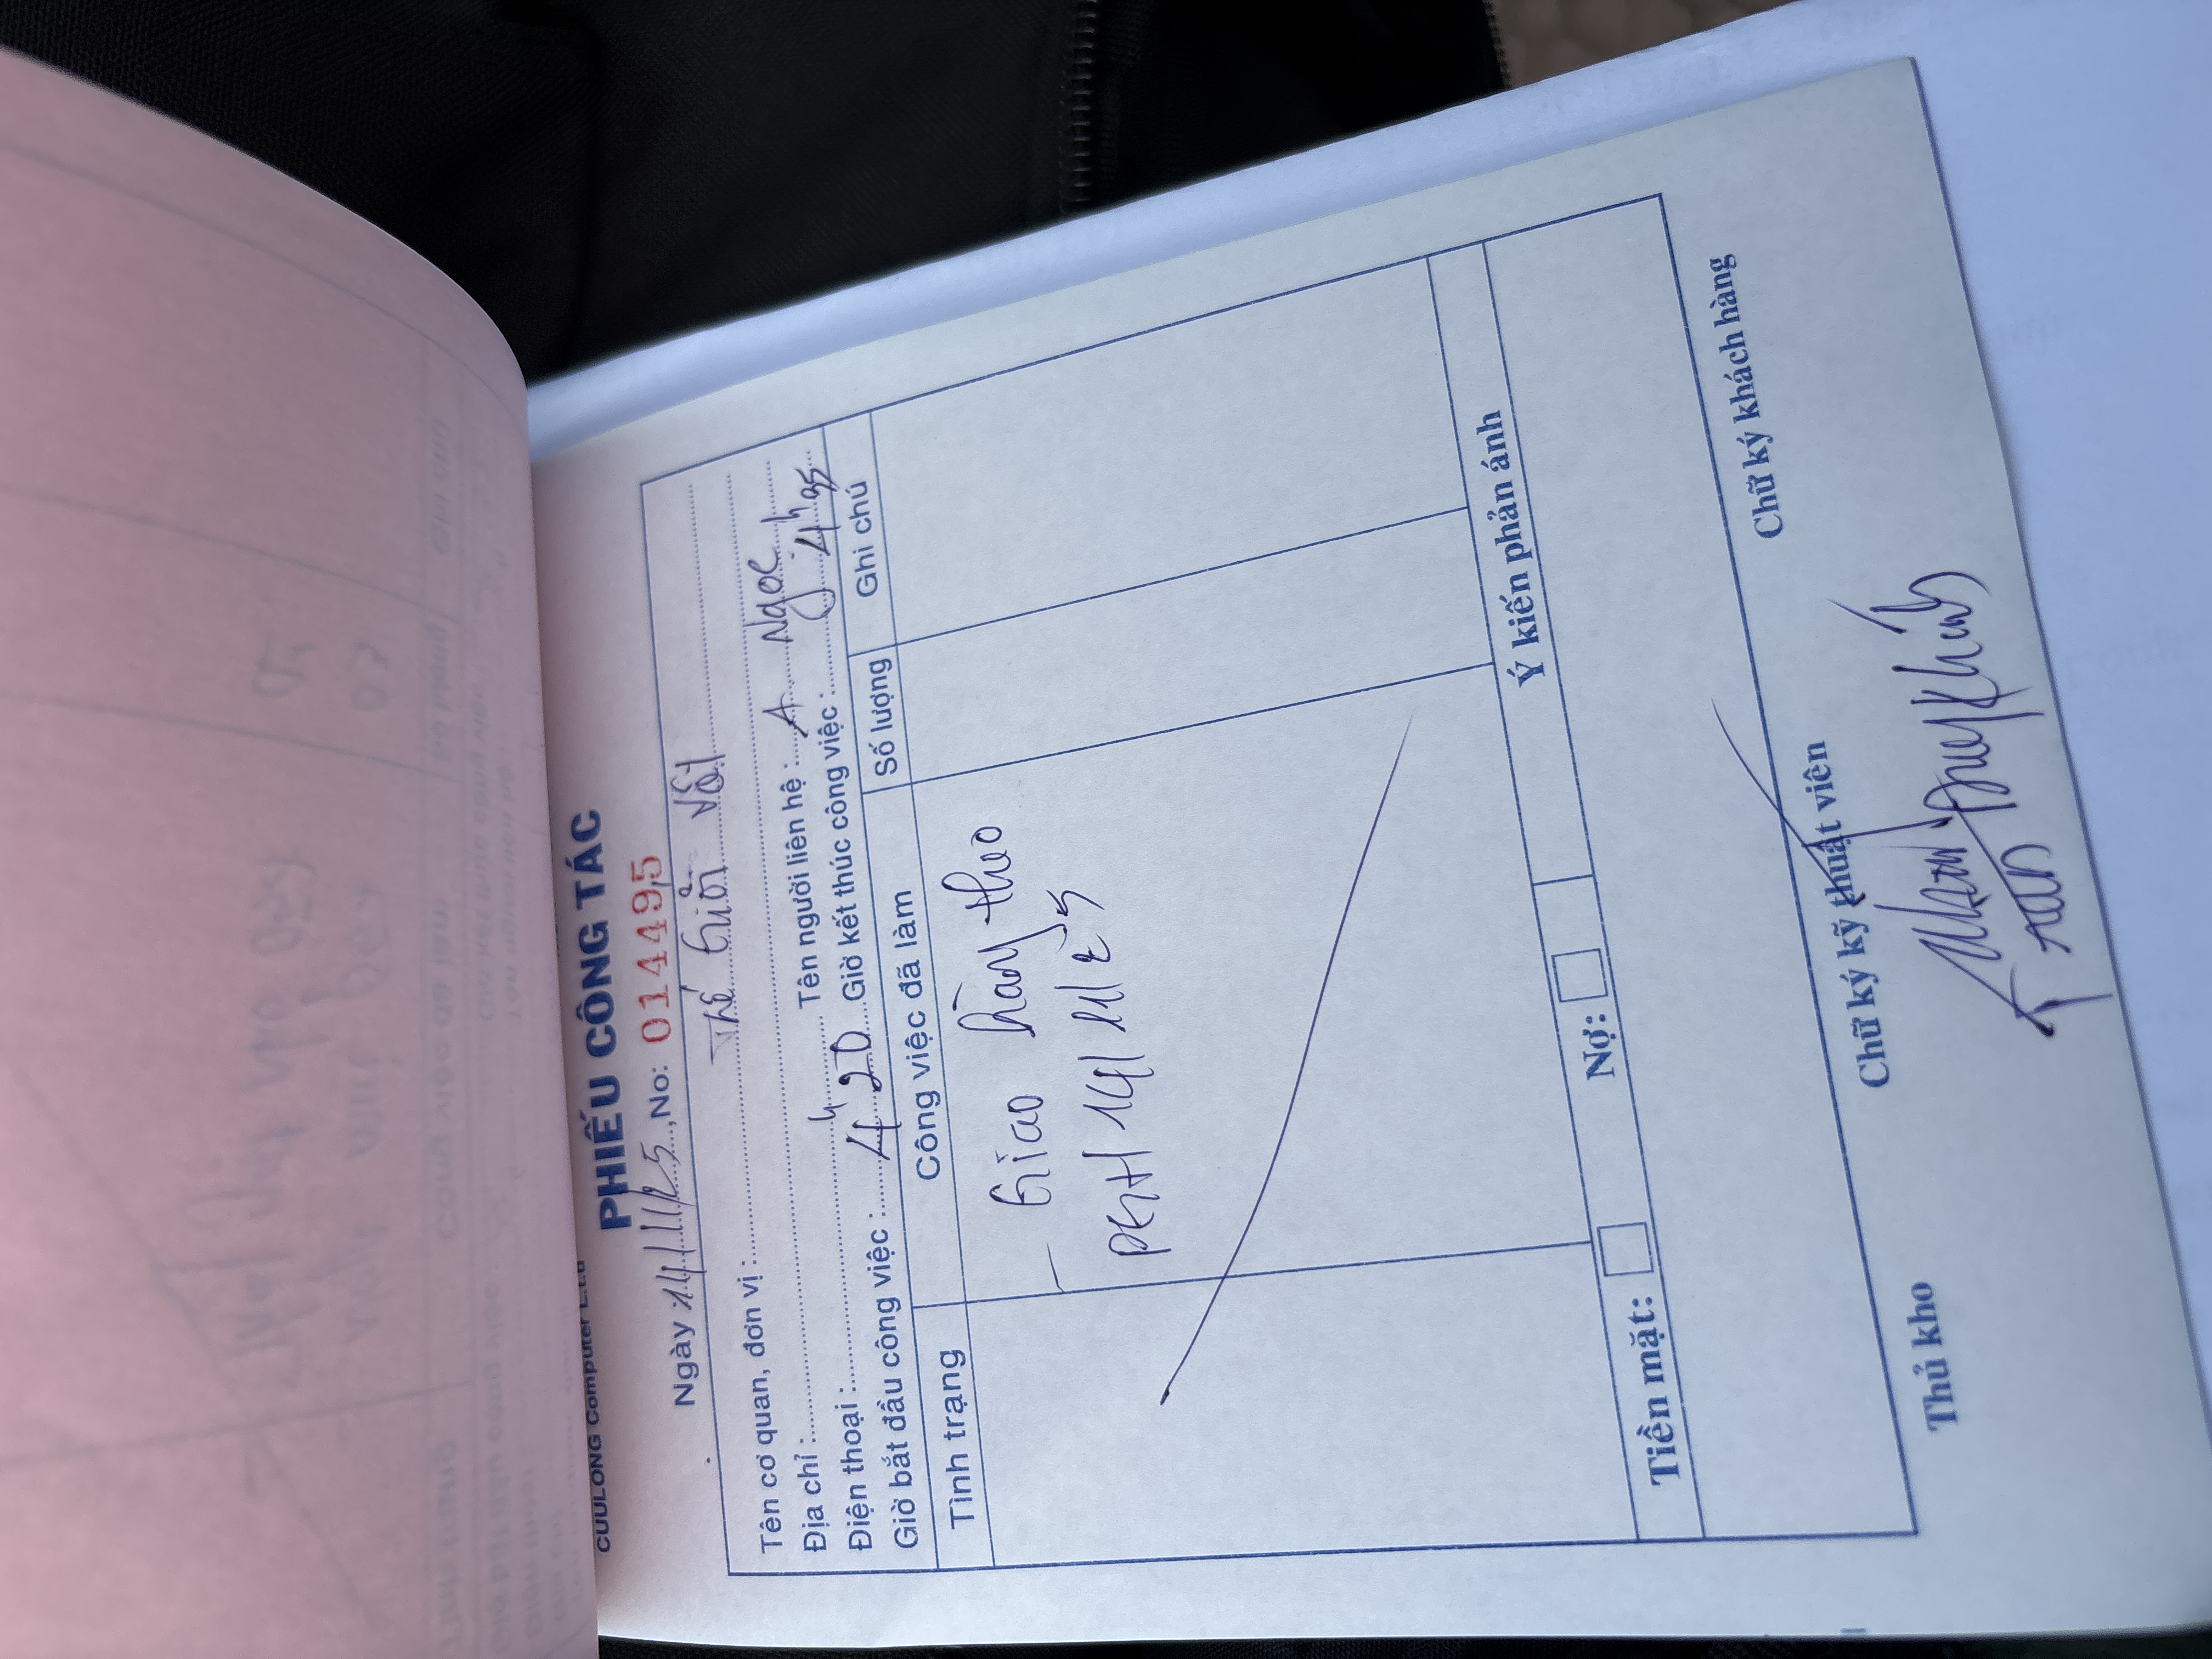 CUULONG Computer Ltd
PHIẾU CÔNG TÁC
Ngày 14/11/25, No: 014495
Tên cơ quan, đơn vị: Thế Giới
Địa chỉ:
Điện thoại: Tên người liên hệ: A Ngọc
Giờ bắt đầu công việc: 4h20 Giờ kết thúc công việc: 4h35
Tình trạng Công việc đã làm Số lượng Ghi chú
- Giao hàng theo
PGH 14/11/25
Ý kiến phản ánh
Tiền mặt: Nợ:
Thủ kho Chữ ký kỹ thuật viên Chữ ký khách hàng